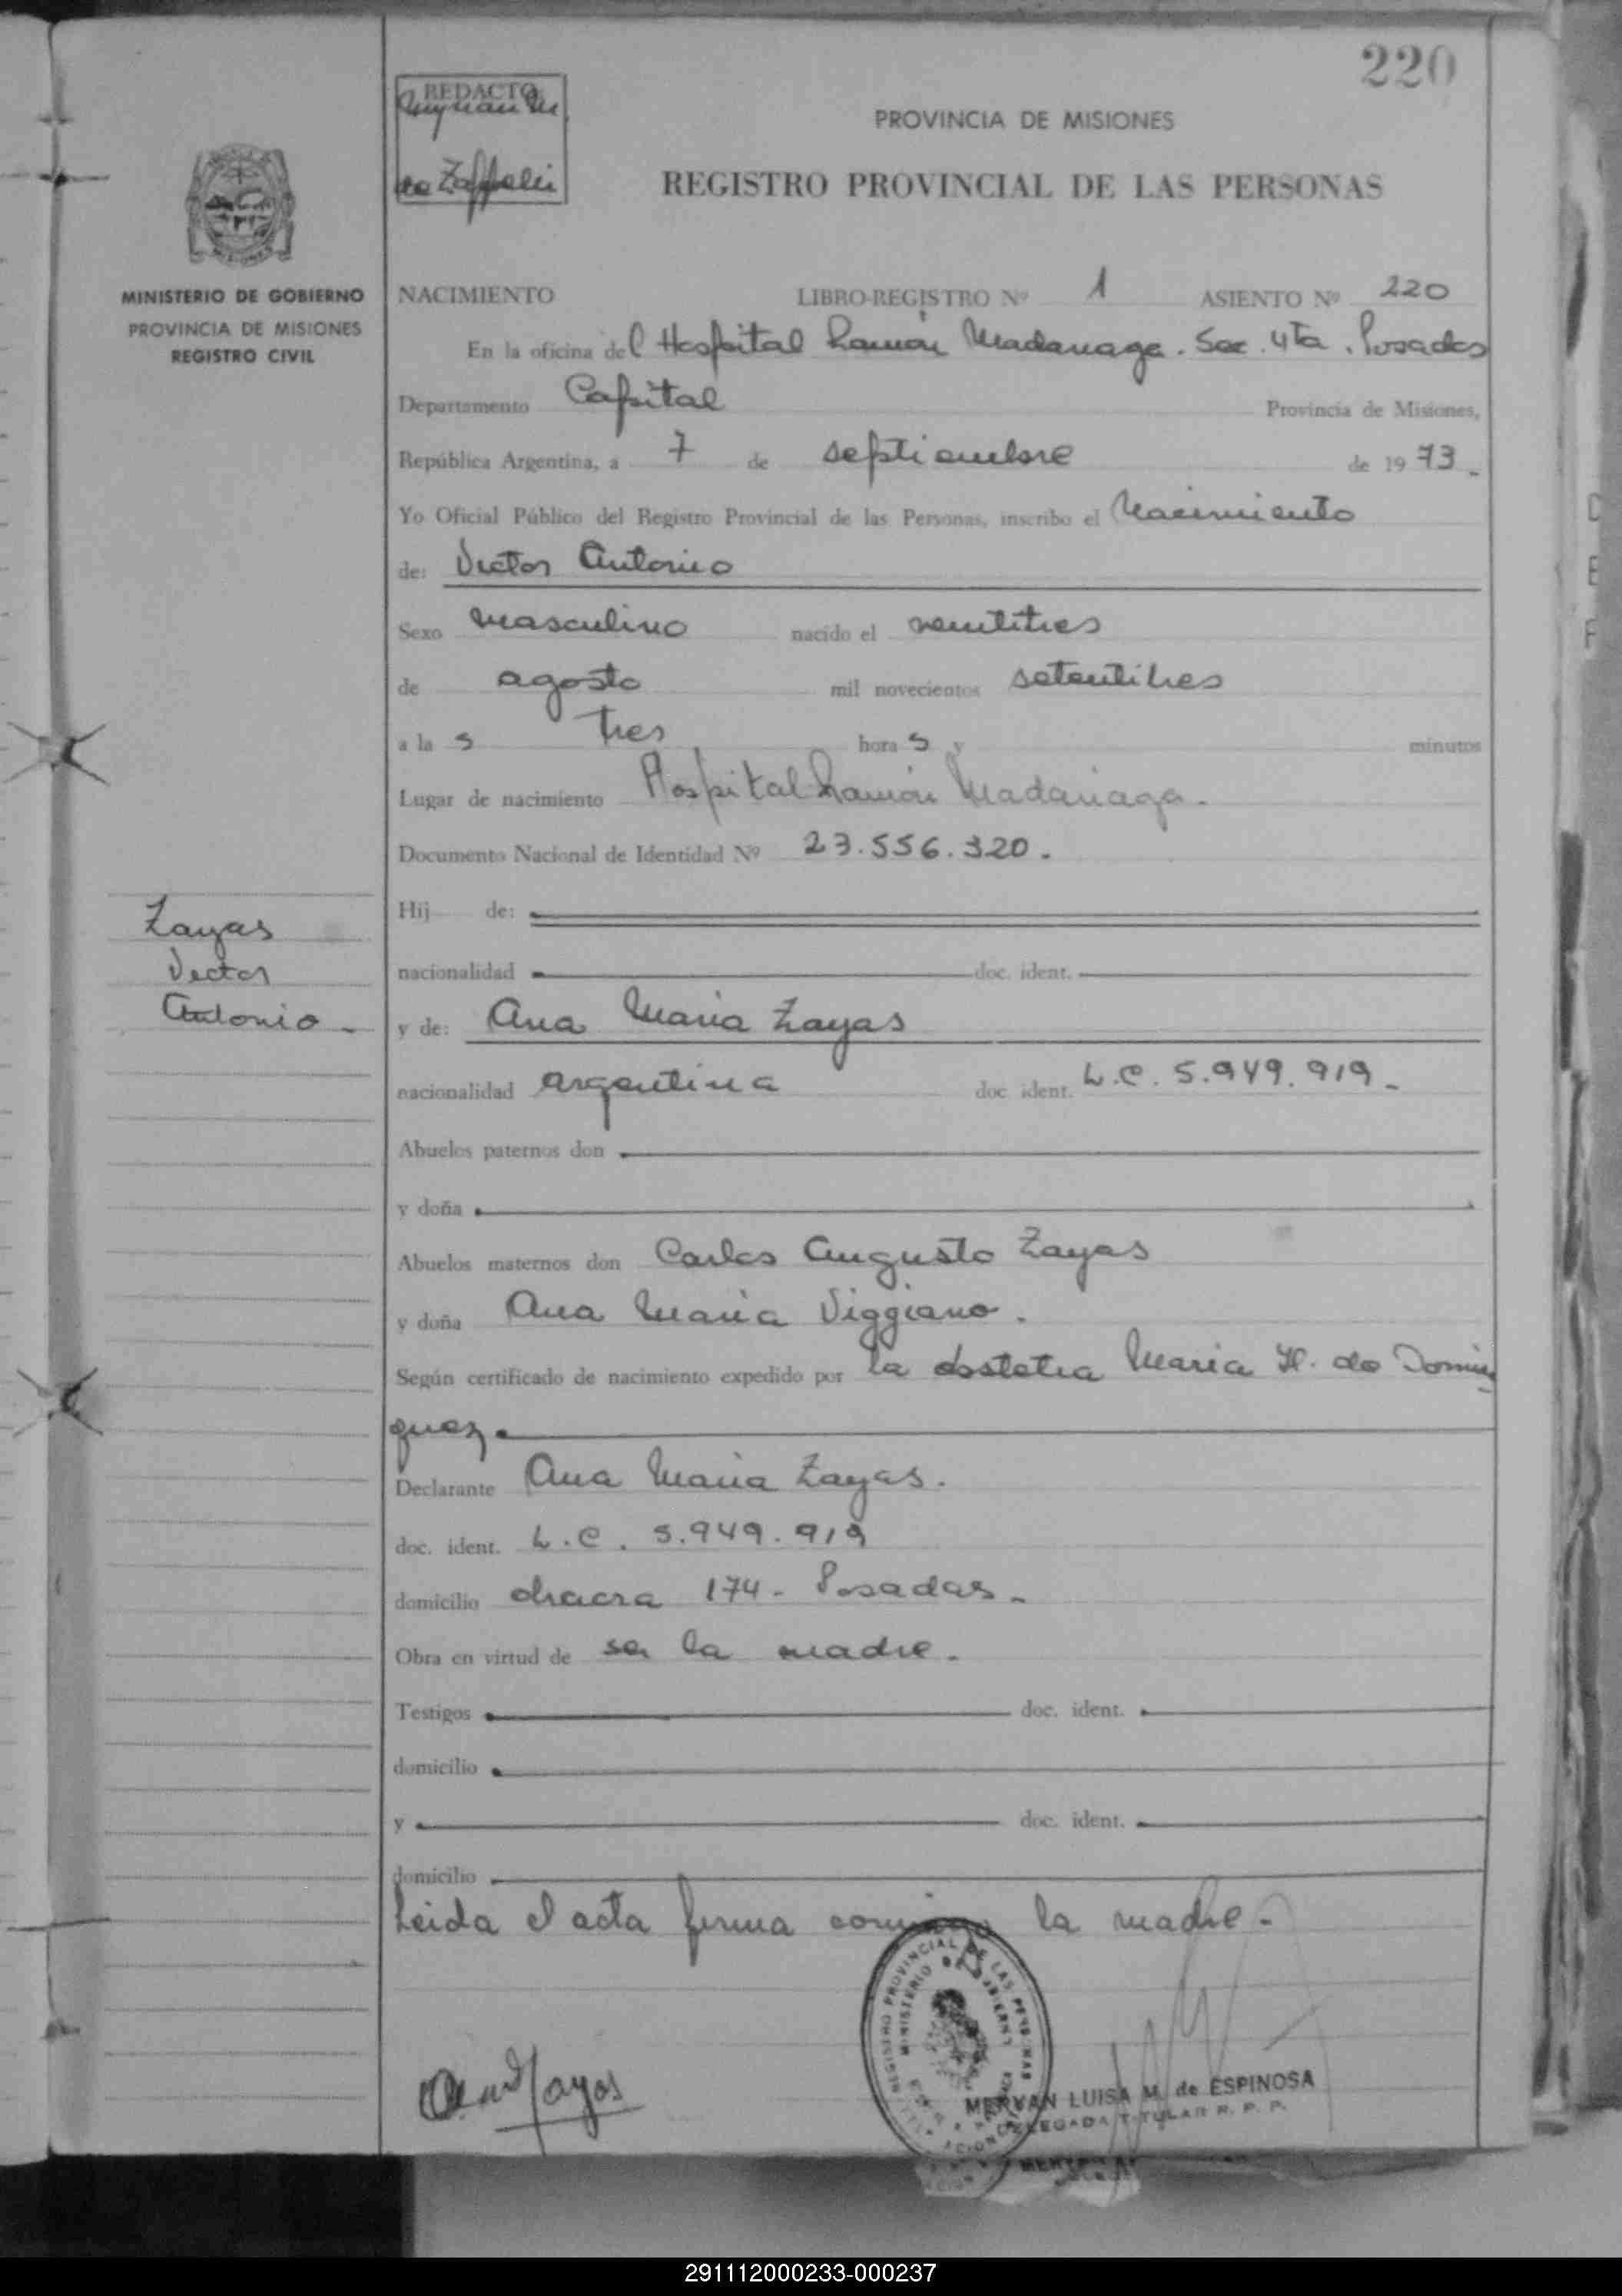 220
REDACTO
de Zaffolin
PROVINCIA DE MISIONES
REGISTRO PROVINCIAL DE LAS PERSONAS
MINISTERIO DE GOBIERNO
PROVINCIA DE MISIONES
REGISTRO CIVIL
NACIMIENTO LIBRO-REGISTRO Nº 1 ASIENTO Nº 220
En la oficina del Hospital Ramón Madariaga. Sec. 4ta. Posadas
Departamento Capital Provincia de Misiones,
República Argentina, a 7 de septiembre de 1973.
Yo Oficial Público del Registro Provincial de las Personas, inscribo el Nacimiento
de: Victor Antonio
Sexo masculino nacido el veintitres
de agosto mil novecientos setentitres
a las tres horas y minutos
Lugar de nacimiento Hospital Ramón Madariaga.
Documento Nacional de Identidad Nº 23.556.320.
Hij de:
nacionalidad doc. ident.
Zayas
Victor
Antonio.
y de: Ana Maria Zayas
nacionalidad argentina doc. ident. L.C. 5.949.919.
Abuelos paternos don
y doña
Abuelos maternos don Carlos Augusto Zayas
y doña Ana Maria Viggiano.
Según certificado de nacimiento expedido por la obstetra Maria H. de Domin
guez.
Declarante Ana Maria Zayas.
doc. ident. L.C. 5.949.919
domicilio chacra 174. Posadas.
Obra en virtud de ser la madre.
Testigos doc. ident.
domicilio
y doc. ident.
domicilio
Leida el acta firma conmigo la madre.
REGISTRO PROVINCIAL DE LAS PERSONAS
MINISTERIO DE GOBIERNO
Ana Zayas
MERYAN LUISA M. de ESPINOSA
DELEGADA TITULAR R. P. P.
291112000233-000237